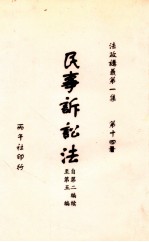 法政講義第一集　第十四冊
民事訴訟法
自第二編續
至第五編
丙午社印行